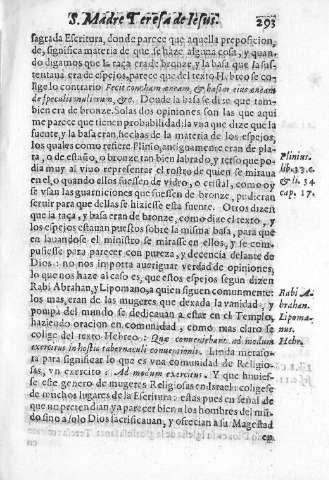 S. Madre Teresa de Iesus. 293
sagrada Escritura, donde parece que aquella preposicion,
de, significa materia de que se haze alguna cosa, y quan-
do digamos que la taça era de bronze, y la basa que la sus-
tentaua era de espejos, parece que del texto Hebreo se co-
lige lo contrario: Fecit concham æneam, & basim eius æneam
de speculis mulierum, &c. Donde la basa se dize que tam-
bien era de bronze. Solas dos opiniones son las que aqui
me parece que tienen probabilidad: la vna que dize que la
fuente, y la basa eran hechas de la materia de los espejos,
los quales como refiere Plinio, antiguamente eran de pla-
ta, o de estaño, o bronze tan bien labrado, y terso que po-
dia muy al viuo representar el rostro de quien se miraua
en el, o quando ellos fuessen de vidro, o cristal, como oy
se vsan las guarniciones que fuessen de bronze, pudieran
seruir para que dellas se hiziesse esta fuente. Otros dizen
que la taça, y basa eran de bronze, como dize el texto, y
los espejos estauan puestos sobre la misma basa, para que
en lauandose el ministro se mirasse en ellos, y se com-
pusiesse para parecer con pureza, y decencia delante de
Dios: no nos importa aueriguar verdad de opiniones,
lo que nos haze al caso es, que estos espejos segun dizen
Rabi Abrahan, y Lipomano, a quien siguen comunmente
los mas, eran de las mugeres que dexada la vanidad, y
pompa del mundo se dedicauan a estar en el Templo,
haziendo oracion en comunidad, como mas claro se
colige del texto Hebreo: Quæ conuenerbant ad modum
exercitus in hostio tabernaculi conuentionis. Linda metafo-
ra para significar lo que es vna comunidad de Religio-
sas, vn exercito: Ad modum exercitus. Y que huuies-
se este genero de mugeres Religiosas en Israel: colígese
de muchos lugares de la Escritura: estas pues en señal de
que no pretendian ya parecer bien a los hombres del mun-
do sino a solo Dios sacrificauan, y ofrecian a su Magestad
en
Plinius.
lib. 33. c.
& li. 34
cap. 17.
Rabi A-
brahan.
Lipoma-
nus.
Hebr.